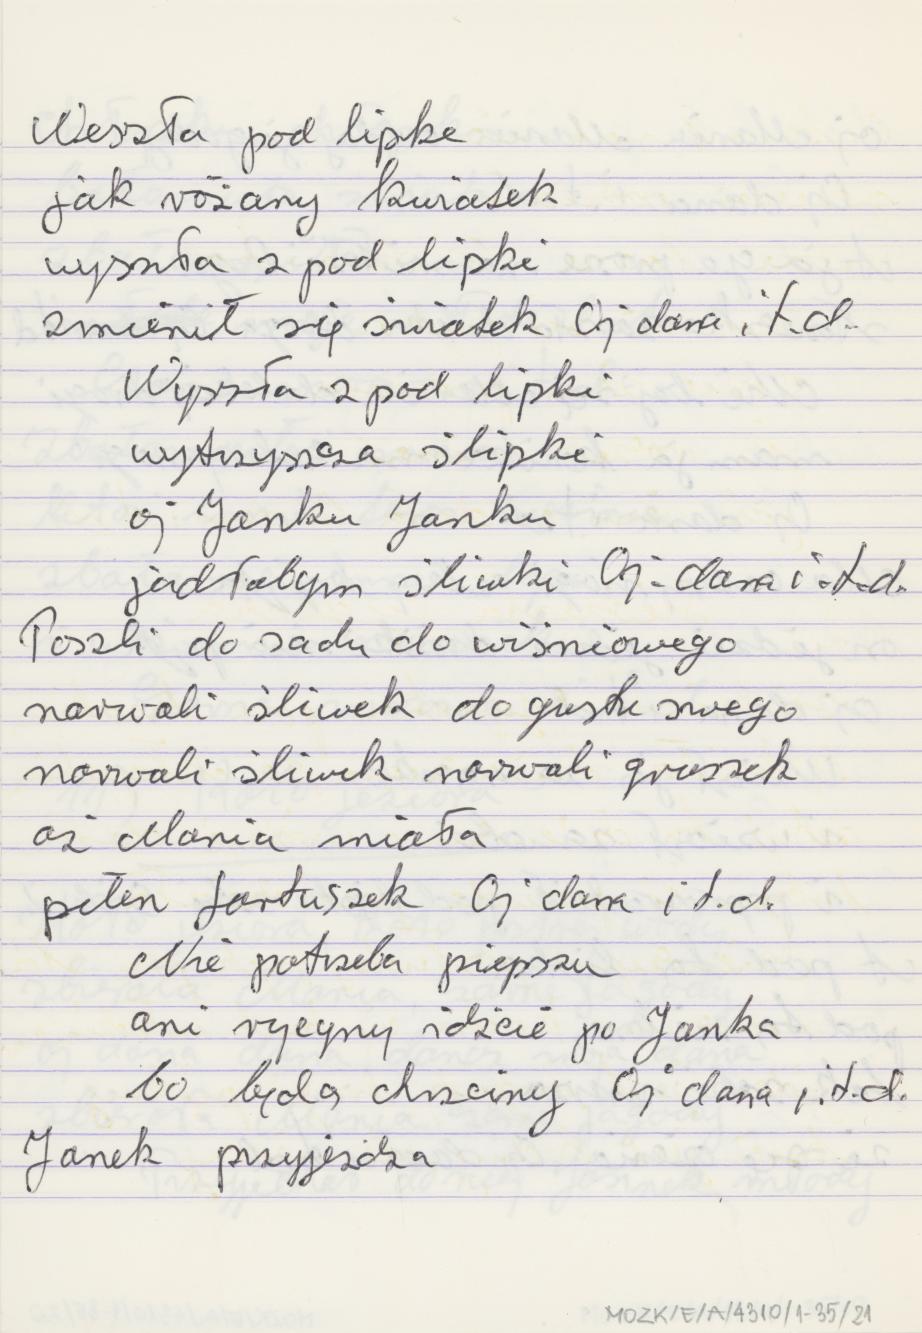 Weszła pod lipke
jak różany kwiatek
wyszła z pod lipki
zmienił się światek Oj dana i t.d.
Wyszła z pod lipki
wytrzyszcza ślipki
oj Janku Janku
jadłabym śliwki Oj-dana i.t.d.
Poszli do sadu do wiśniowego
narwali śliwek do gustu swego
narwali śliwek narwali gruszek
aż Mania miała
pełen fartuszek Oj dana i t.d.
Nie potrzeba piepszu
ani rycyny idźcie po Janka
bo będą chrzciny Oj dana i.t.d.
Janek przyjeżdża
MOZK/E/A/4310/1-35/21